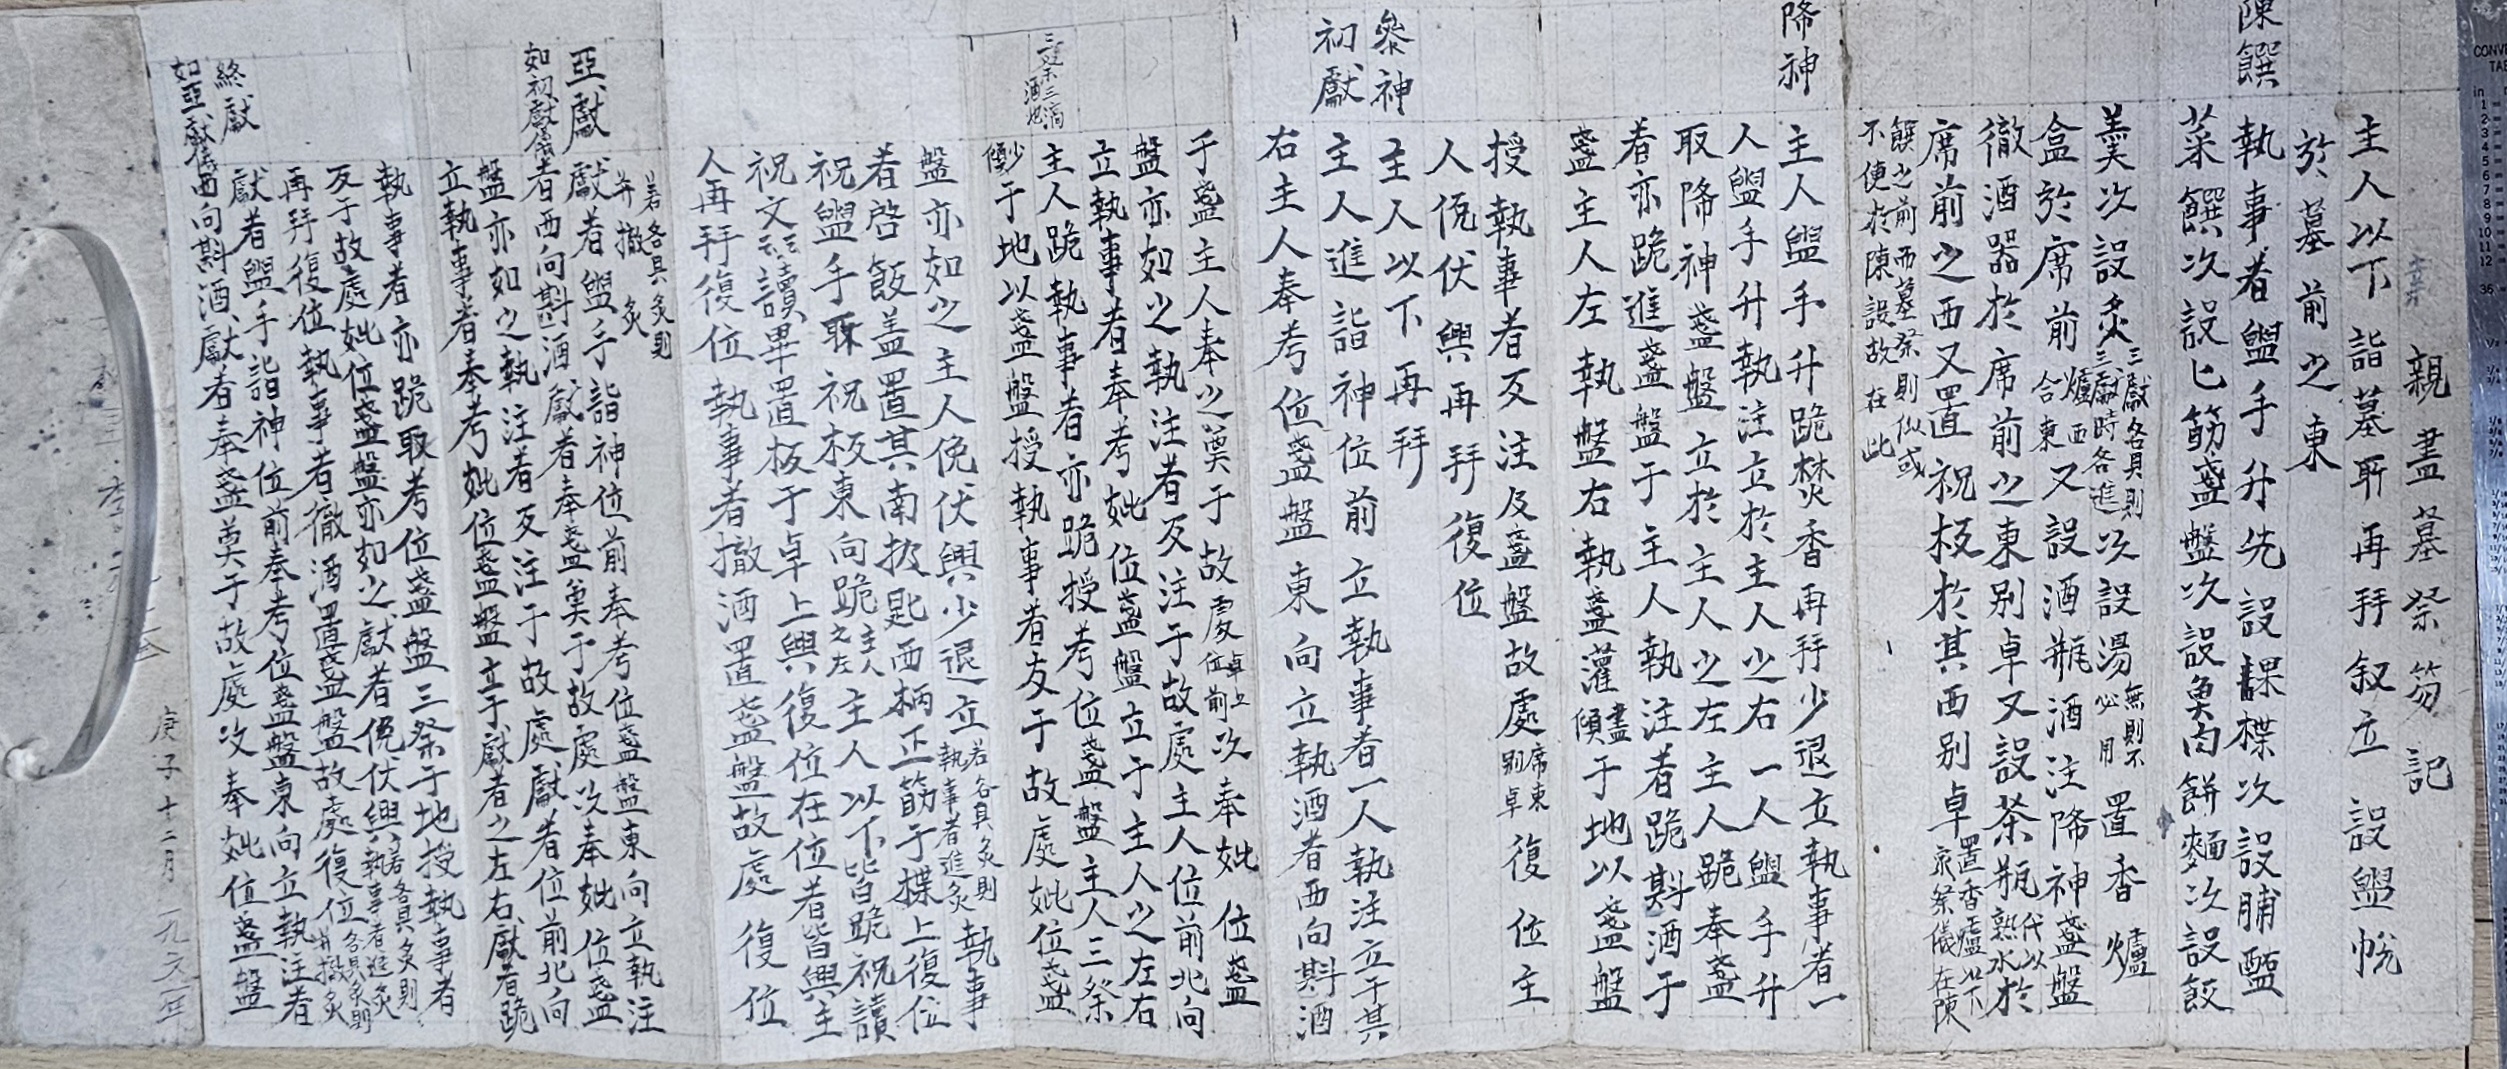 親盡墓祭笏記
主人以下詣墓所再拜叙立 設盥帨
於墓前之東
陳饌
執事者盥手升先設果楪次設脯醢
菜饌次設匕筯盞盤次設魚肉餅麵次設飯
羹次設炙三獻各具則三獻時各進次設湯無則不必用置香爐
盒於席前爐西合東又設酒瓶酒注降神盞盤
徹酒器於席前之東別卓又設茶瓶代以熟水於
席前之西又置祝板於其西別卓置香爐以下家祭儀在陳
饌之前而墓祭則似或不便於陳設故在此
降神
主人盥手升跪焚香再拜少退立執事者一
人盥手升執注立於主人之右一人盥手升
取降神盞盤立於主人之左主人跪奉盞
者亦跪進盞盤于主人執注者跪斟酒于
盞主人左執盤右執盞灌傾盡于地以盞盤
授執事者反注及盞盤故處席東別卓復位主
人俛伏興再拜復位
參神
主人以下再拜
初獻
主人進詣神位前立執事者一人執注立于其
右主人奉考位盞盤東向立執酒者西向斟酒
于盞主人奉之奠于故處卓上位前次奉妣位盞
盤亦如之執注者反注于故處主人位前北向
立執事者奉考妣位盞盤立于主人之左右
主人跪執事者亦跪授考位盞盤主人三祭
三祭三滴酒也
少傾于地以盞盤授執事者反于故處妣位盞
盤亦如之主人俛伏興少退立若各具炙則執事者進炙執事
者啓飯盖置其南扱匙西柄正筯于楪上復位
祝盥手取祝板東向跪主人之左主人以下皆跪祝讀
祝文讀畢置板于卓上興復位在位者皆興主
人再拜復位 執事者撤酒置盞盤故處復位
若各具炙則并撤炙
亞獻
如初獻儀
獻者盥手詣神位前奉考位盞盤東向立執注
者西向斟酒獻者奉盞奠于故處次奉妣位盞
盤亦如之執注者反注于故處獻者位前北向
立執事者奉考妣位盞盤立于獻者之左右獻者跪
執事者亦跪取考位盞盤三祭于地授執事者
反于故處妣位盞盤亦如之獻者俛伏興若各具炙則執事者進炙
再拜復位執事者徹酒置盞盤故處復位各具炙則并撤炙
終獻
如亞獻儀
獻者盥手詣神位前奉考位盞盤東向立執注者
西向斟酒獻者奉盞奠于故處次奉妣位盞盤
庚子十二月